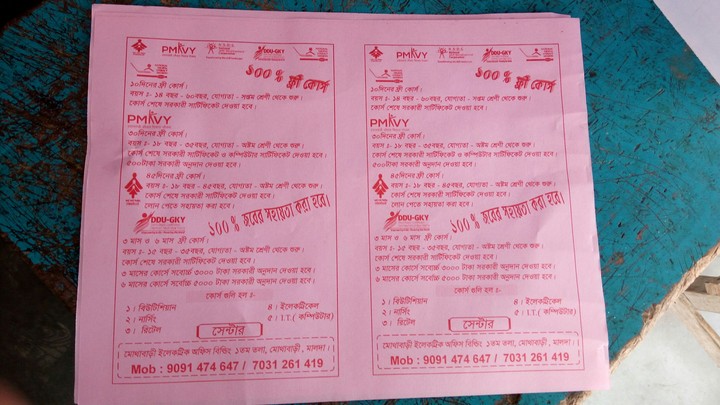 PMKVY
DDU-GKY
১০০% ফ্রী কোর্স
১০দিনের ফ্রী কোর্স।
বয়স ঃ- ১৪ বছর - ৬০বছর, যোগ্যতা - সপ্তম শ্রেণী থেকে শুরু।
কোর্স শেষে সরকারী সার্টিফিকেট দেওয়া হবে।
PMKVY
৩০দিনের ফ্রী কোর্স।
বয়স ঃ- ১৮ বছর - ৩৫বছর, যোগ্যতা - অষ্টম শ্রেণী থেকে শুরু।
কোর্স শেষে সরকারী সার্টিফিকেট ও কম্পিউটার সার্টিফিকেট দেওয়া হবে।
৫০০টাকা সরকারী অনুদান দেওয়া হবে।
৪৫দিনের ফ্রী কোর্স।
বয়স ঃ- ১৮ বছর - ৪৫বছর, যোগ্যতা - অষ্টম শ্রেণী থেকে শুরু।
কোর্স শেষে সরকারী সার্টিফিকেট দেওয়া হবে।
লোন পেতে সহায়তা করা হবে।
DDU-GKY
১০০% জবের সহায়তা করা হবে।
৩ মাস ও ৬ মাস ফ্রী কোর্স।
বয়স ঃ- ১৫ বছর - ৩৫বছর, যোগ্যতা - অষ্টম শ্রেণী থেকে শুরু।
কোর্স শেষে সরকারী সার্টিফিকেট দেওয়া হবে।
৩ মাসের কোর্সে সর্বোচ্চ ৩০০০ টাকা সরকারী অনুদান দেওয়া হবে।
৬ মাসের কোর্সে সর্বোচ্চ ৫০০০ টাকা সরকারী অনুদান দেওয়া হবে।
কোর্স গুলি হল ঃ-
১। বিউটিশিয়ান ৪। ইলেকট্রিকেল
২। নার্সিং ৫। I.T. ( কম্পিউটার)
৩। রিটেল
সেন্টার
মোথাবাড়ী ইলেকট্রিক অফিস বিল্ডিং ১তম তলা, মোথাবাড়ী, মালদা।
Mob : 9091 474 647 / 7031 261 419
PMKVY
DDU-GKY
১০০% ফ্রী কোর্স
১০দিনের ফ্রী কোর্স।
বয়স ঃ- ১৪ বছর - ৬০বছর, যোগ্যতা - সপ্তম শ্রেণী থেকে শুরু।
কোর্স শেষে সরকারী সার্টিফিকেট দেওয়া হবে।
PMKVY
৩০দিনের ফ্রী কোর্স।
বয়স ঃ- ১৮ বছর - ৩৫বছর, যোগ্যতা - অষ্টম শ্রেণী থেকে শুরু।
কোর্স শেষে সরকারী সার্টিফিকেট ও কম্পিউটার সার্টিফিকেট দেওয়া হবে।
৫০০টাকা সরকারী অনুদান দেওয়া হবে।
৪৫দিনের ফ্রী কোর্স।
বয়স ঃ- ১৮ বছর - ৪৫বছর, যোগ্যতা - অষ্টম শ্রেণী থেকে শুরু।
কোর্স শেষে সরকারী সার্টিফিকেট দেওয়া হবে।
লোন পেতে সহায়তা করা হবে।
DDU-GKY
১০০% জবের সহায়তা করা হবে।
৩ মাস ও ৬ মাস ফ্রী কোর্স।
বয়স ঃ- ১৫ বছর - ৩৫বছর, যোগ্যতা - অষ্টম শ্রেণী থেকে শুরু।
কোর্স শেষে সরকারী সার্টিফিকেট দেওয়া হবে।
৩ মাসের কোর্সে সর্বোচ্চ ৩০০০ টাকা সরকারী অনুদান দেওয়া হবে।
৬ মাসের কোর্সে সর্বোচ্চ ৫০০০ টাকা সরকারী অনুদান দেওয়া হবে।
কোর্স গুলি হল ঃ-
১। বিউটিশিয়ান ৪। ইলেকট্রিকেল
২। নার্সিং ৫। I.T. ( কম্পিউটার)
৩। রিটেল
সেন্টার
মোথাবাড়ী ইলেকট্রিক অফিস বিল্ডিং ১তম তলা, মোথাবাড়ী, মালদা।
Mob : 9091 474 647 / 7031 261 419